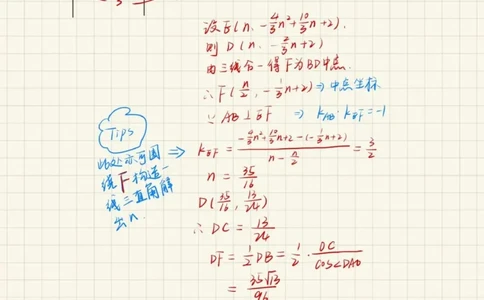 设E(n, -4/3n²+10/3n+2).
则 D(n, -2/3n+2)
由三线合一得F为BD中点.
∴F(n/2, -1/3n+2) ⇒ 中点坐标
∵ AB⊥EF ⇒ k_AB·k_EF=-1
Tips
此处亦可围
绕F构造一
线三直角解
出n.
⇒ k_EF = (-4/3n²+10/3n+2-(-1/3n+2))/(n-n/2) = 3/2
n = 35/16
D(35/16, 13/24)
∴ DC = 13/24
DF = 1/2DB = 1/2·DC/cos∠DAO
= 35√13/96